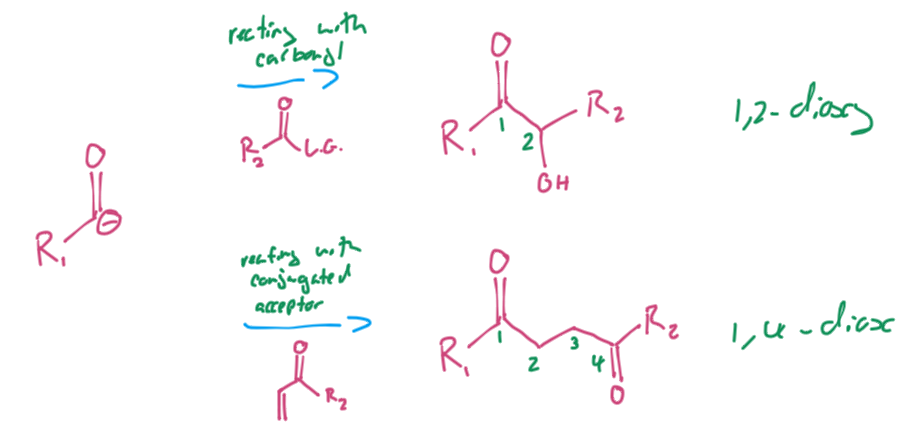 recting with
carbonyl
O
R₂
L.G.
O
R₁
1
2
R₂
OH
1,2-dioxy
O
R₁
⊖
reacting with
conjugated
acceptor
O
R₂
O
R₁
1
2
3
4
R₂
O
1,4-diox